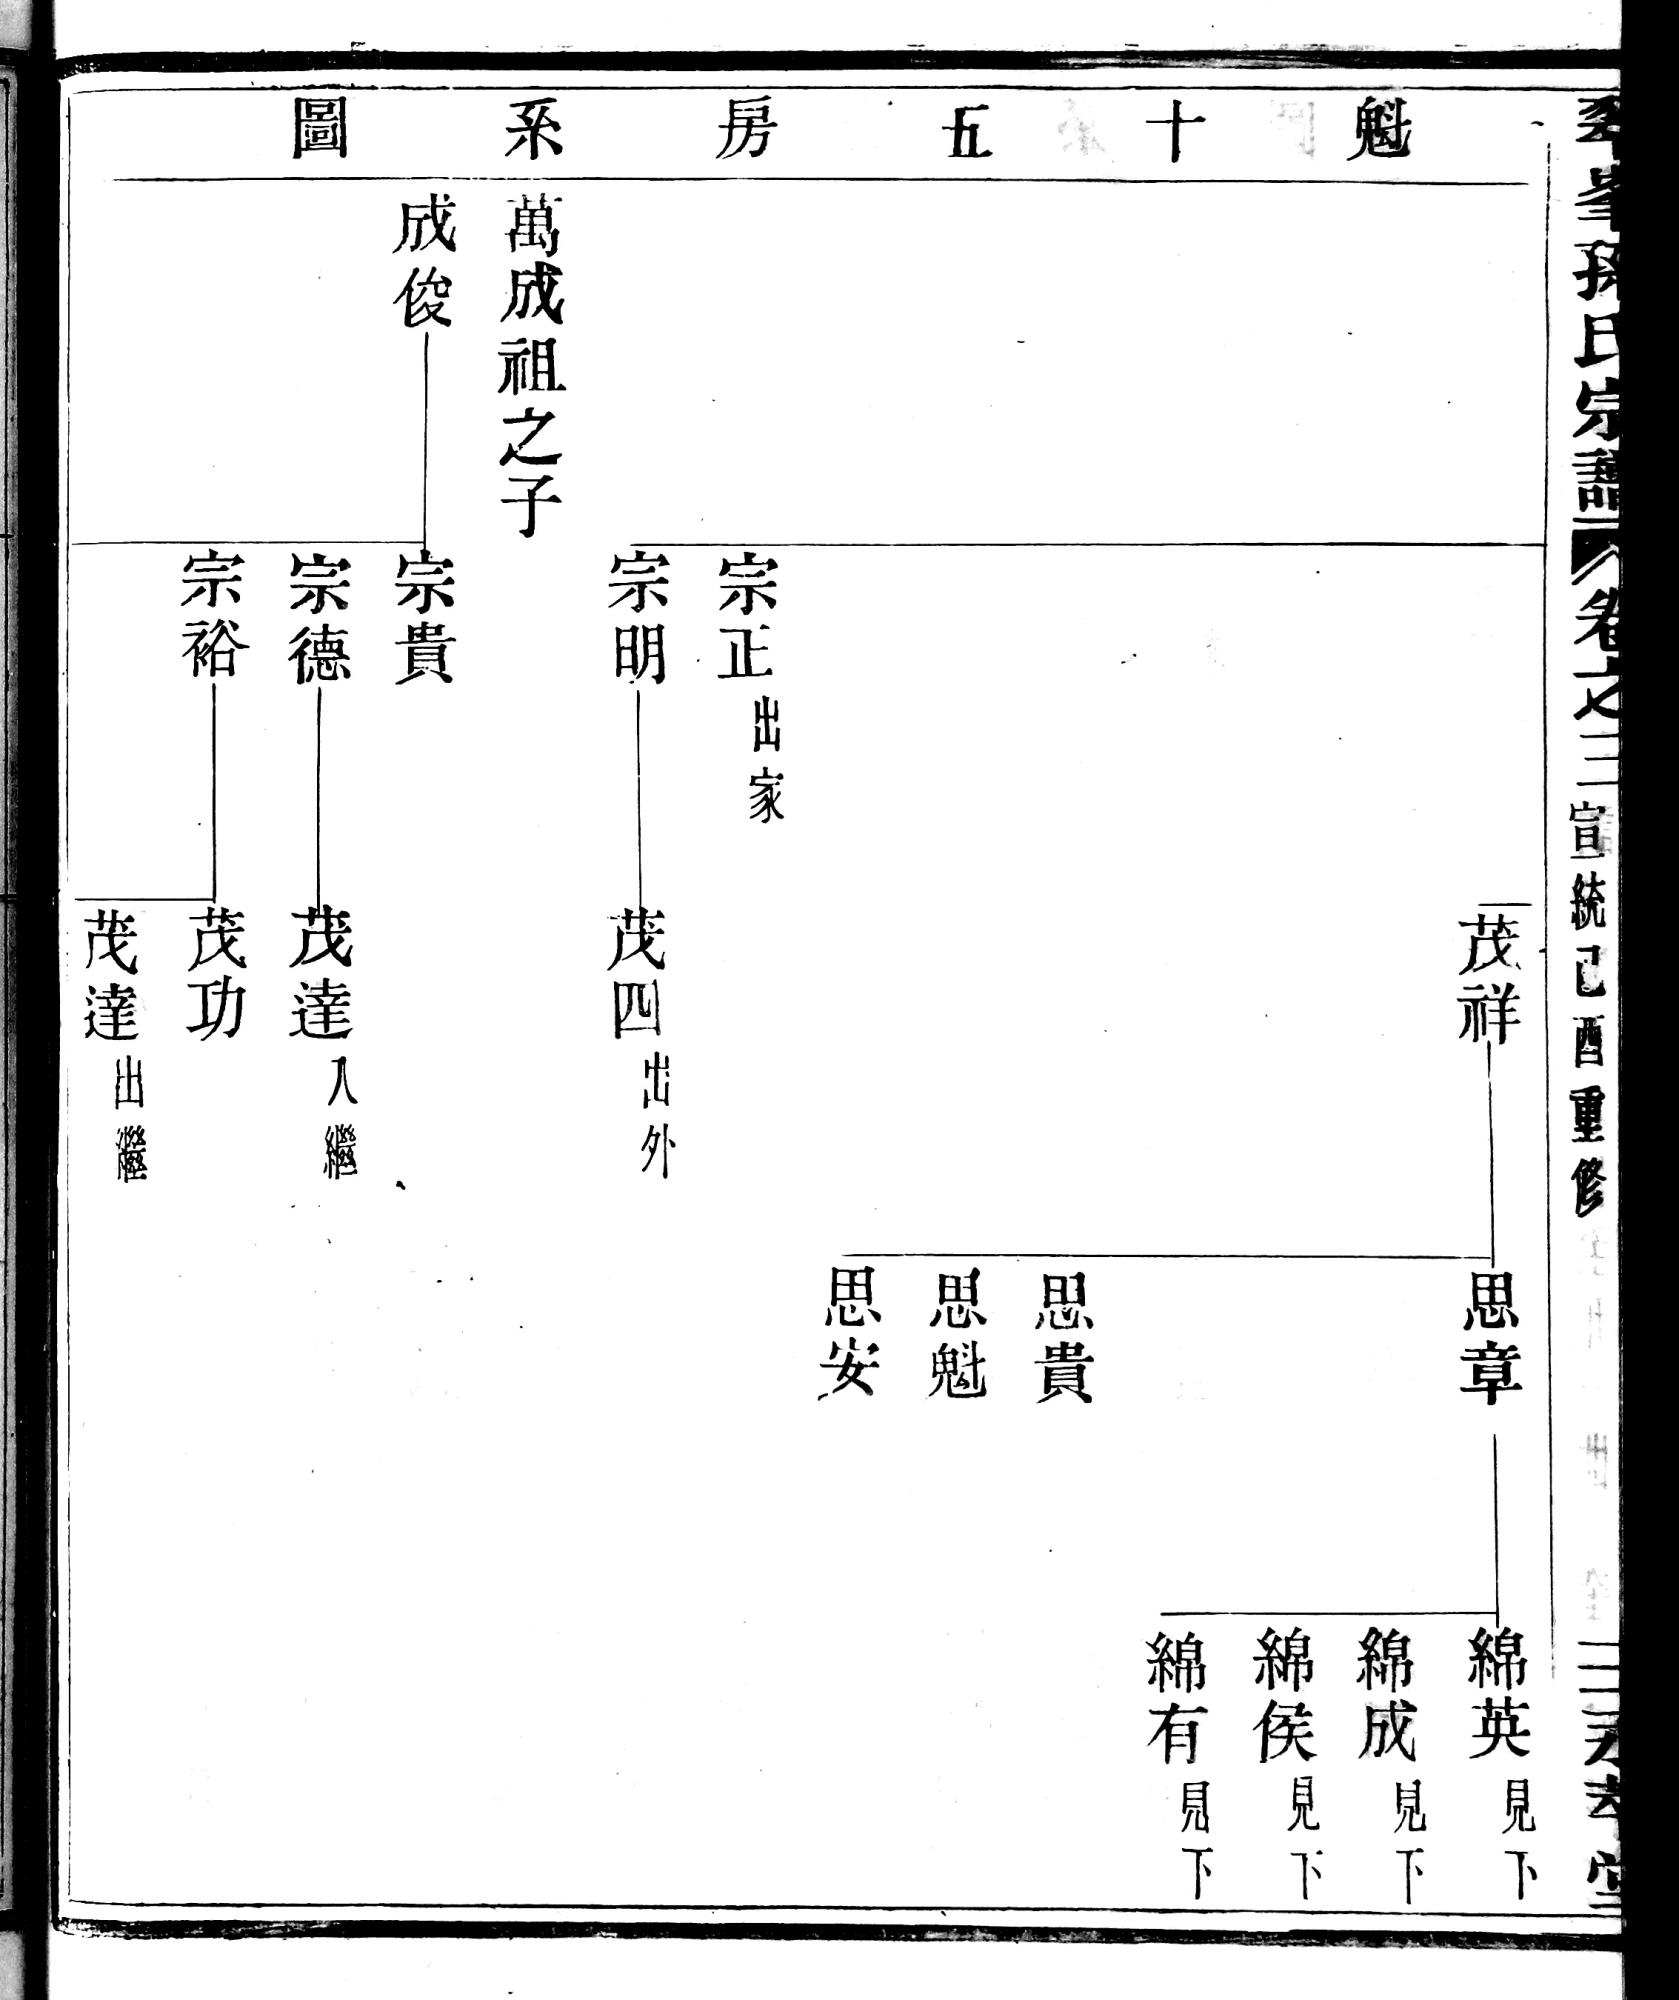 峯孫氏宗譜
卷之三
宣統己酉重修
堂
魁十五房系圖
茂祥
思章
綿英見下
綿成見下
綿侯見下
綿有見下
思貴
思魁
思安
宗正出家
宗明
茂四出外
萬成祖之子
成俊
宗貴
宗德
茂達入繼
宗裕
茂功
茂達出繼